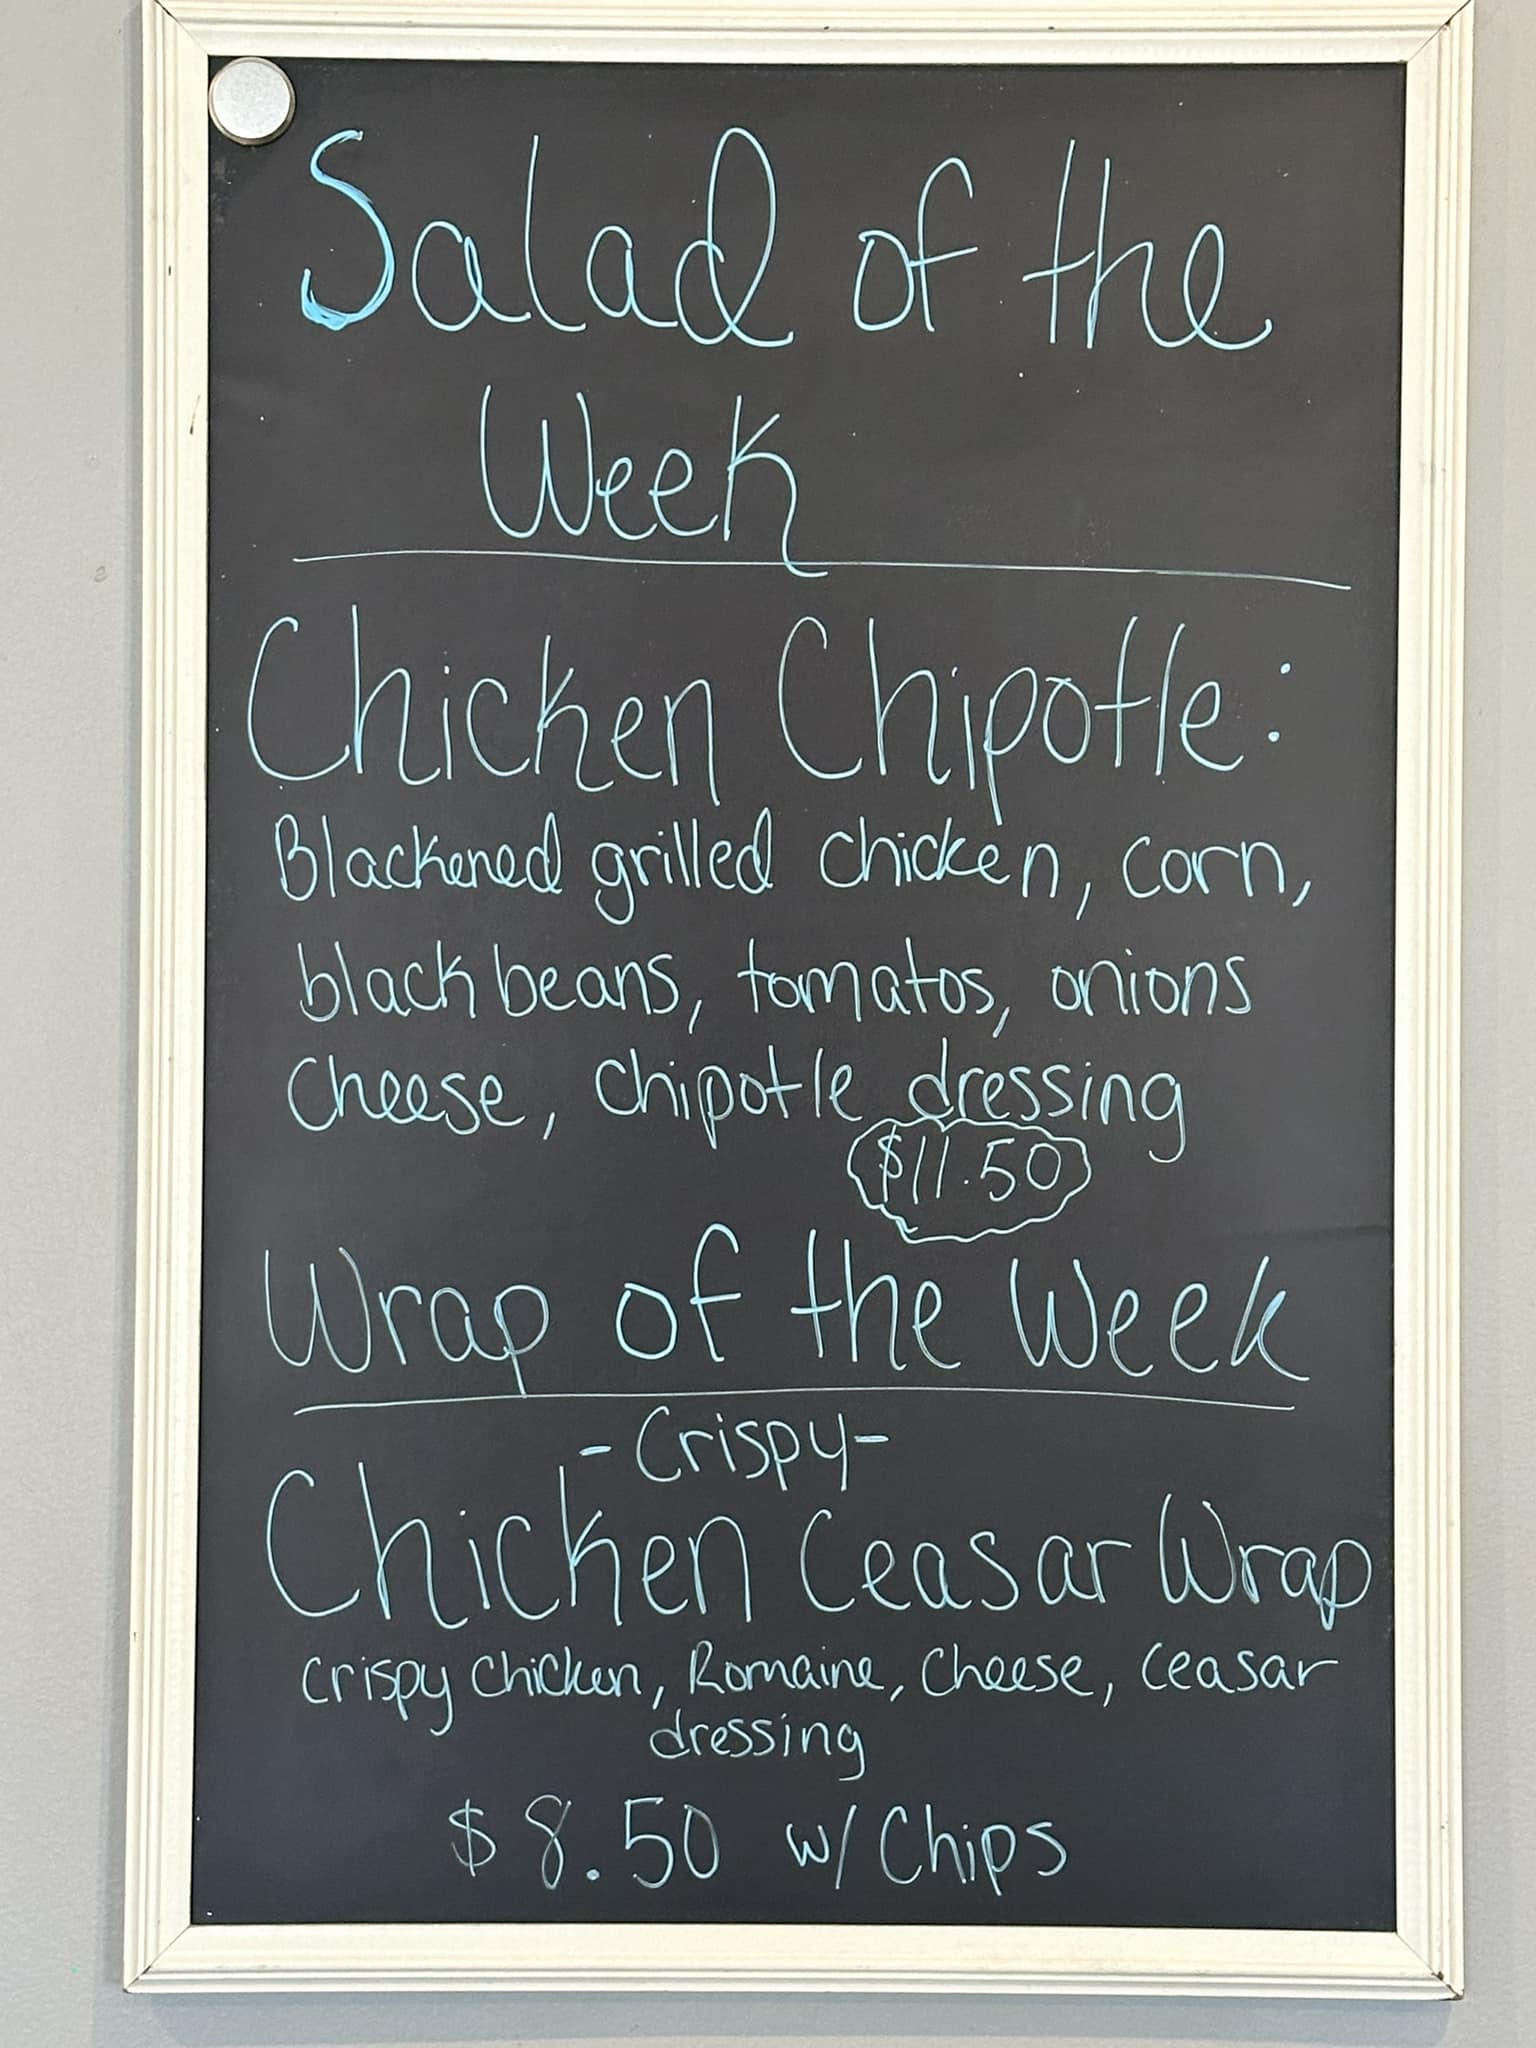 Salad of the
Week
Chicken Chipotle:
Blackened grilled chicken, corn,
black beans, tomatos, onions
Cheese, chipotle dressing
$11.50
Wrap of the Week
-Crispy-
Chicken Ceasar Wrap
crispy chicken, Romaine, Cheese, Ceasar
dressing
$8.50 w/ Chips